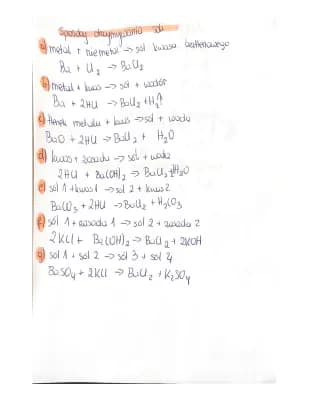 Sposoby otrzymywania soli
a) metal + niemetal → sól kwasu beztlenowego
Ba + Cl₂ → BaCl₂
b) metal + kwas → sól + wodór
Ba + 2HCl → BaCl₂ + H₂↑
c) tlenek metalu + kwas → sól + woda
BaO + 2HCl → BaCl₂ + H₂O
d) kwas + zasada → sól + woda
2HCl + Ba(OH)₂ → BaCl₂ + H₂O
e) sól 1 + kwas 1 → sól 2 + kwas 2
BaCO₃ + 2HCl → BaCl₂ + H₂CO₃
f) sól 1 + zasada 1 → sól 2 + zasada 2
2KCl + Ba(OH)₂ → BaCl₂ + 2KOH
g) sól 1 + sól 2 → sól 3 + sól 4
BaSO₄ + 2KCl → BaCl₂ + K₂SO₄